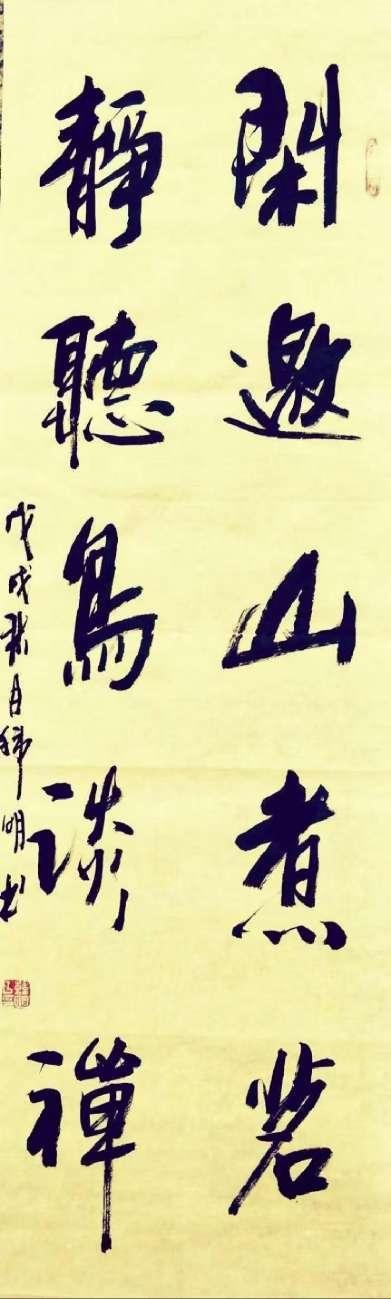 閑邀山煮茗
靜聽鳥談禪
戊戌秋月 明书